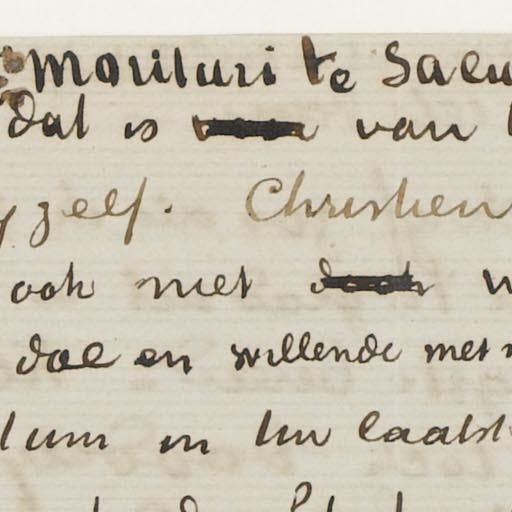 morituri te salu
dat is van
zelf. Christien
ook met
doe en willende met
in Uw laatst